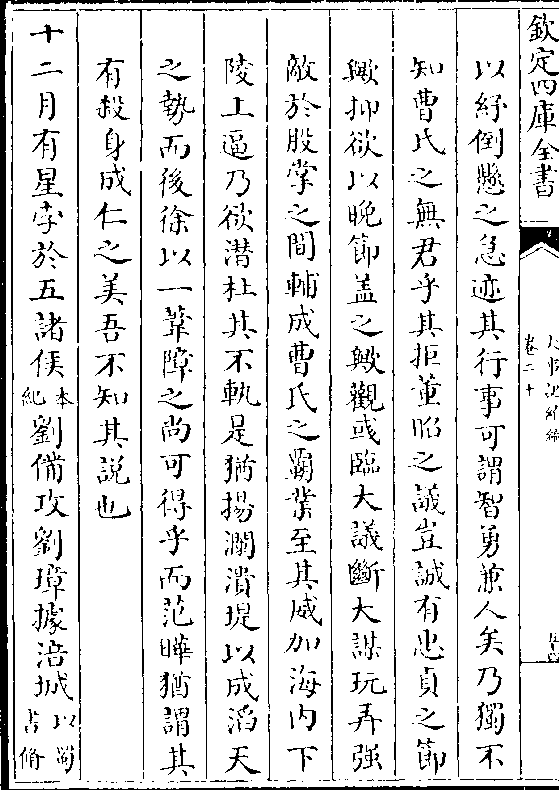 欽定四庫全書
卷二十
以紓倒懸之急迹其行事可謂智勇兼人矣乃獨不
知曹氏之無君乎其拒董昭之議豈誠有忠貞之節
歟抑欲以晚節盖之歟觀彧臨大議斷大謀玩弄强
敵於股掌之間輔成曹氏之霸業至其威加海内下
陵上逼乃欲潛杜其不軌是猶揚瀾潰堤以成滔天
之勢而後徐以一葦障之尚可得乎而范曄猶謂其
有殺身成仁之美吾不知其說也
十二月有星孛於五諸侯本紀劉備攻劉璋據涪城以蜀書脩